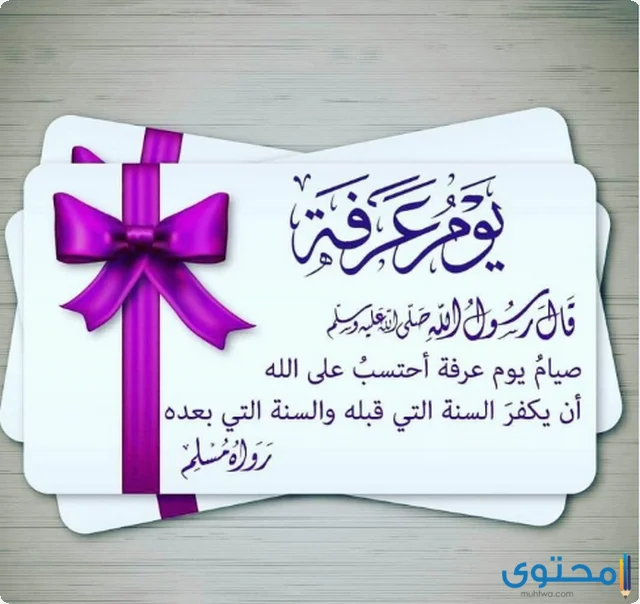 يَوْمُ عَرَفَة
قَالَ رَسُولُ اللهِ صَلَّى اللهُ عَلَيْهِ وَسَلَّم
صيامُ يوم عرفة أحتسبُ على الله
أن يكفرَ السنة التي قبله والسنة التي بعده
رَوَاهُ مُسْلِم
محتوى
muhtwa.com